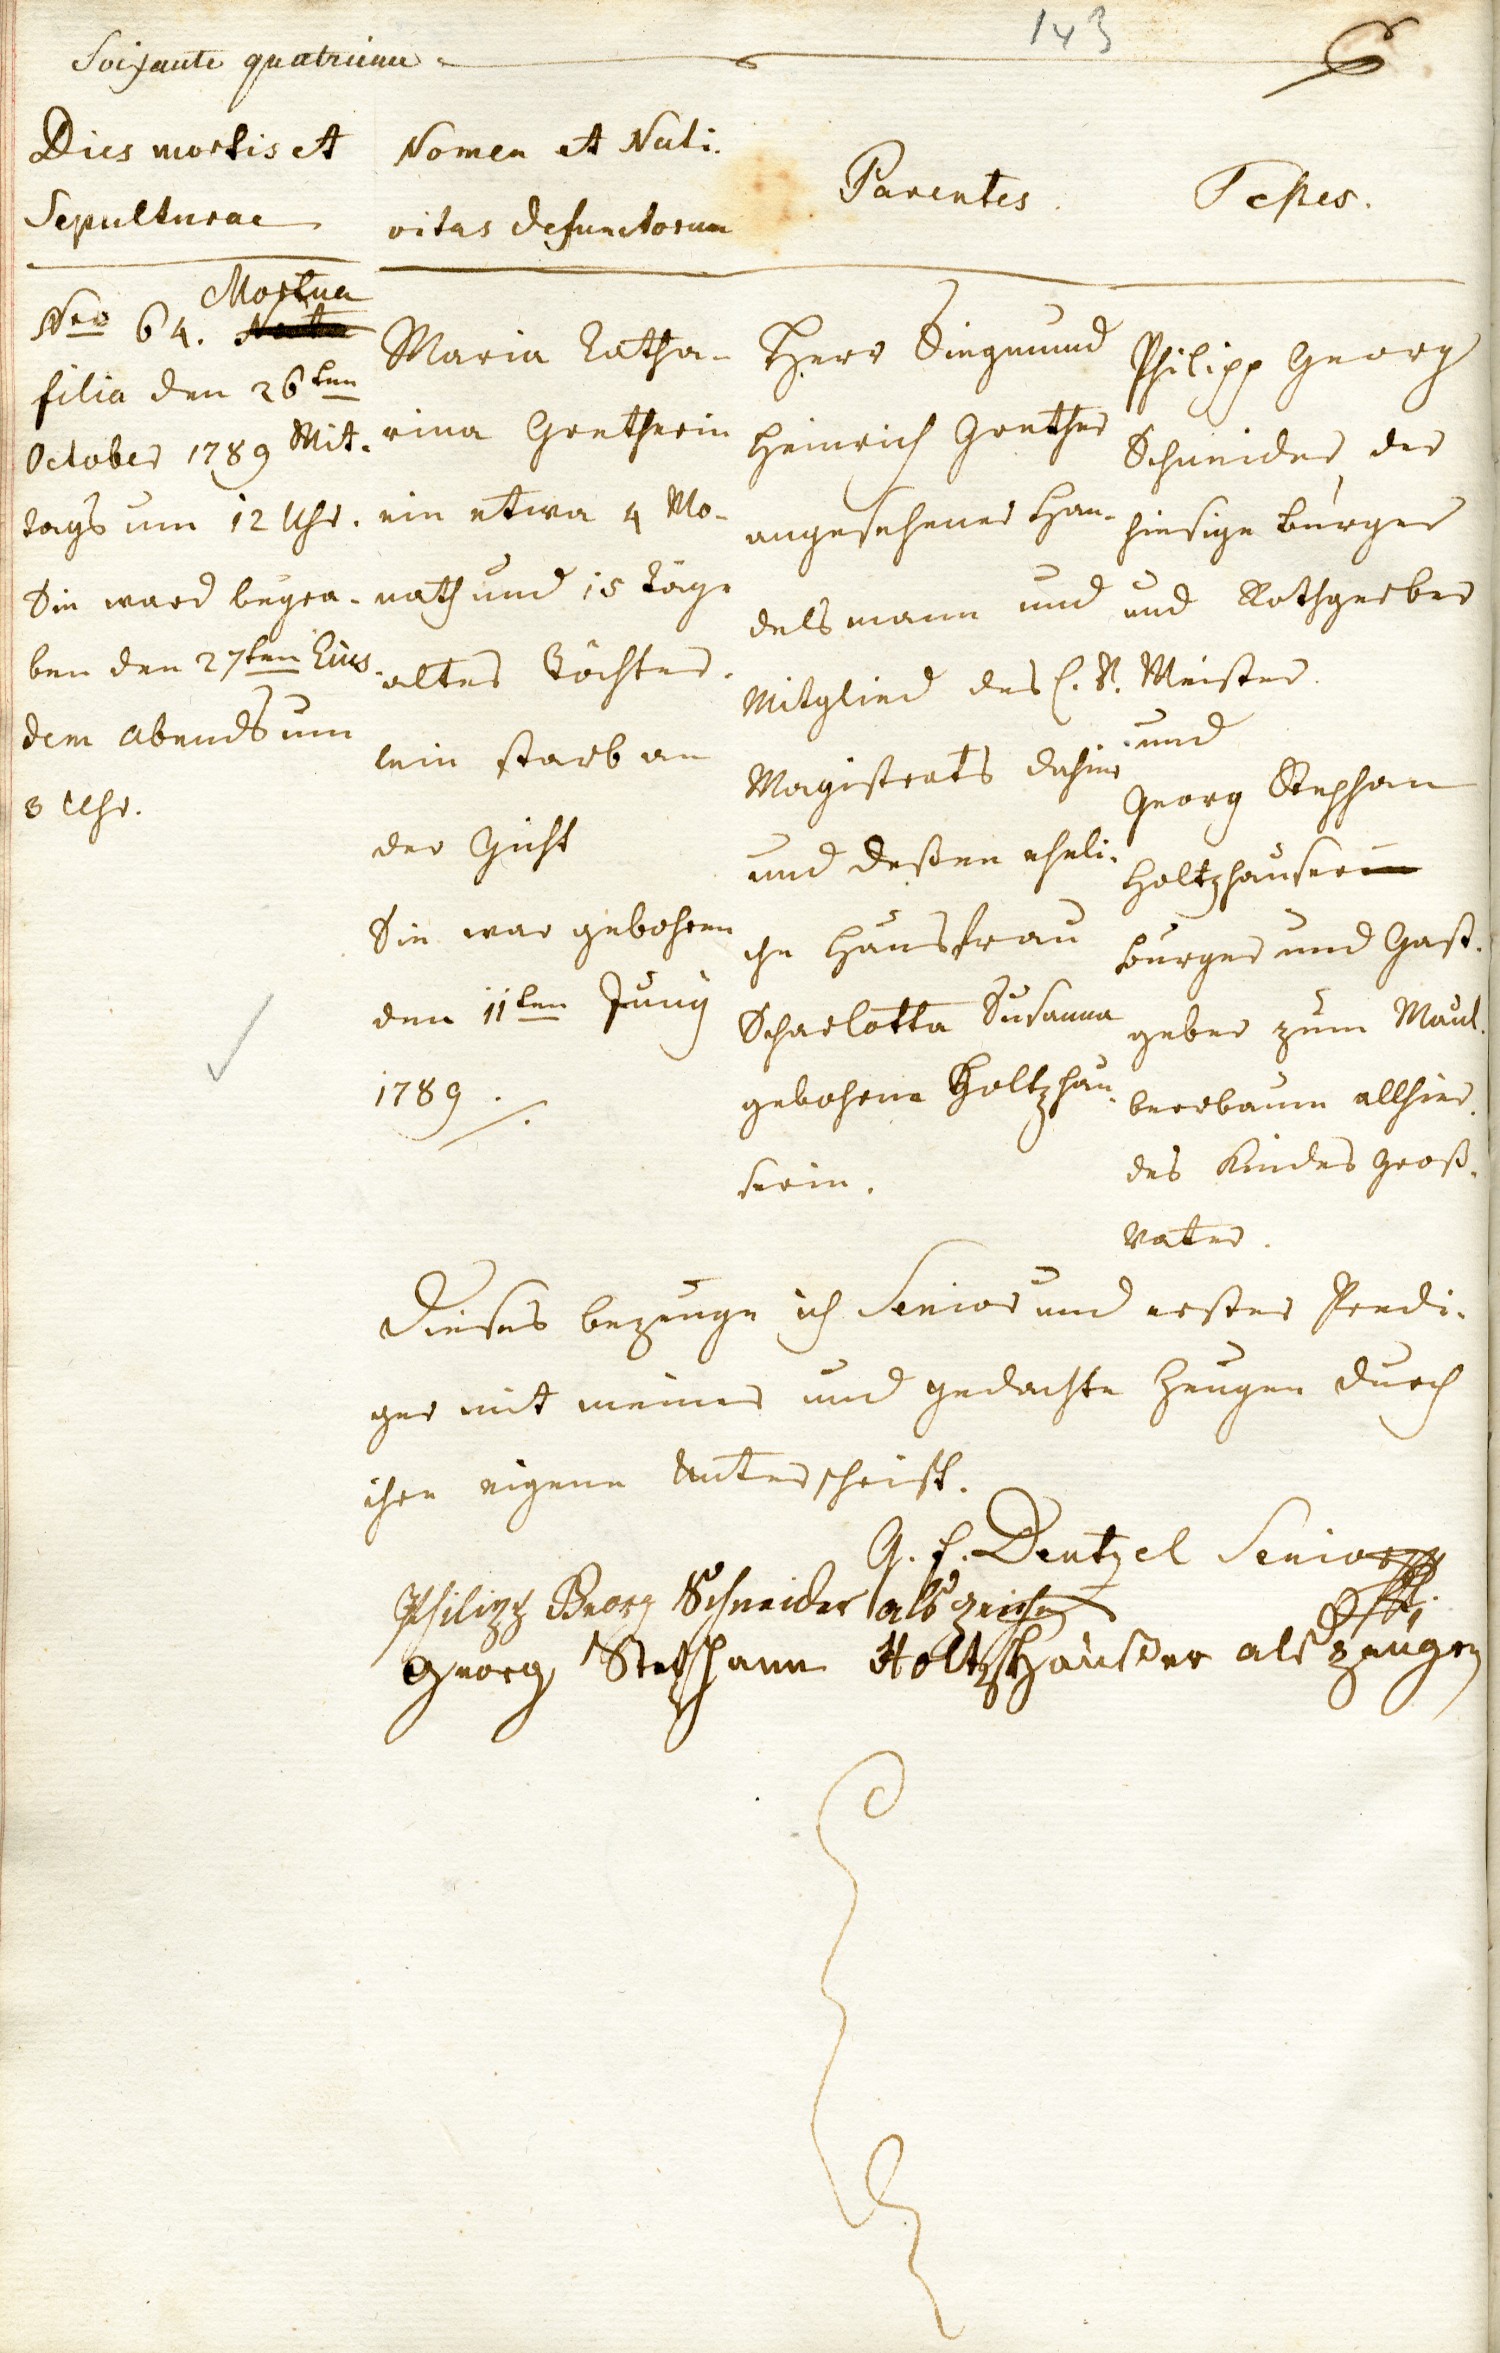 143
Soixante quatrieme
Dies mortis et
Sepulturae
Nro 64. Mortua
filia den 26ten
October 1789 Mit-
tags um 12 Uhr.
Sie ward begra-
ben den 27ten Eius-
dem abends um
3 Uhr.
Nomen et Nati-
vitas defunctorum
Maria Catha-
rina Gretherin
ein etwa 4 Mo-
nath und 15 Täge
altes Töchter-
lein starb an
der Gicht
Sie war gebohren
den 11ten Junÿ
1789.
Parentes.
Herr Siegmund
Heinrich Grether
angesehener Han-
delsmann und
Mitglied des E. E.
Magistrats dahier
und deßen eheli-
che Hausfrau
Scharlotta Susanna
gebohrne Holtzhau-
serin.
Testes.
Philipp Georg
Schneider, der
hiesige Bürger
und Rothgerber
Meister.
und
Georg Stephan
Holtzhauser
Bürger und Gast-
geber zum Maul-
beerbaum allhier.
des Kindes Groß-
Vater.
Dieses bezeuge ich Senior und erster Predi-
ger mit meiner und gedachte Zeugen durch
ihre eigene Unterschrift.
G. F. Dentzel Senior
Philipp Georg Schneider als zeuge
Georg Stephann Holtzhäußer als zeugen